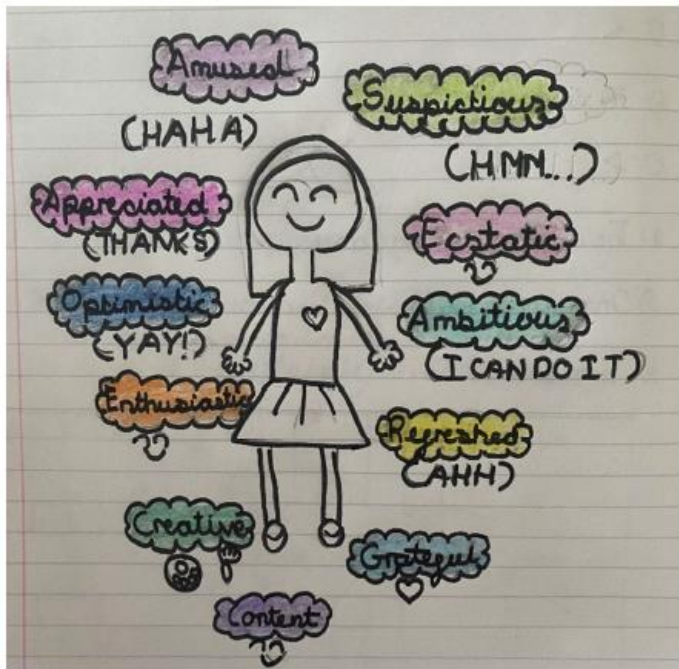 Amused
(HAHA)
Suspictious
(HMM...)
Appreciated
(THANKS)
Ecstatic
Optimistic
(YAY!)
Ambitious
(I CAN DO IT)
Enthusiastic
Refreshed
(AHH)
Creative
Grateful
Content